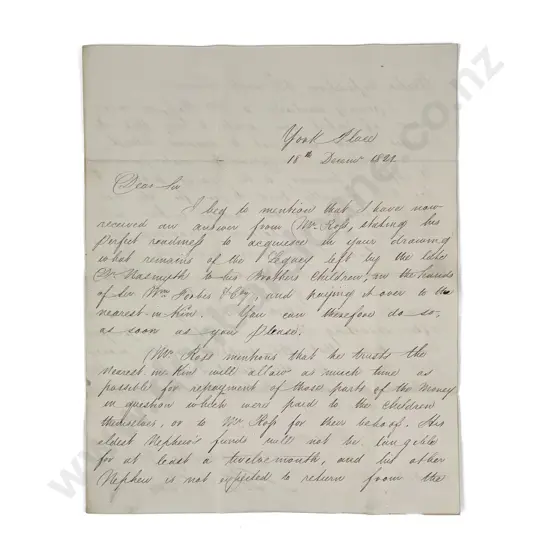 York Place
18th Decemr 182
Dear Sir
I beg to mention that I have now
received an answer from Mr. Ross, stating his
perfect readiness to acquiesce in your drawing
what remains of the Legacy left by the late
Nasmyth to his Brothers Children, in the hands
of Sir Wm. Forbes & Coy, and paying it over to the
nearest in Kin. You can therefore do so,
as soon as you please.
Mr. Ross mentions that he trusts the
nearest in Kin will allow as much time as
possible for repayment of those parts of the money
in question which were paid to the children
themselves, or to Mr Ross for their behoof. His
eldest Nephew's funds will not be tangible
for at least a twelvemonth, and his other
Nephew is not expected to return from the
www. .co.nz